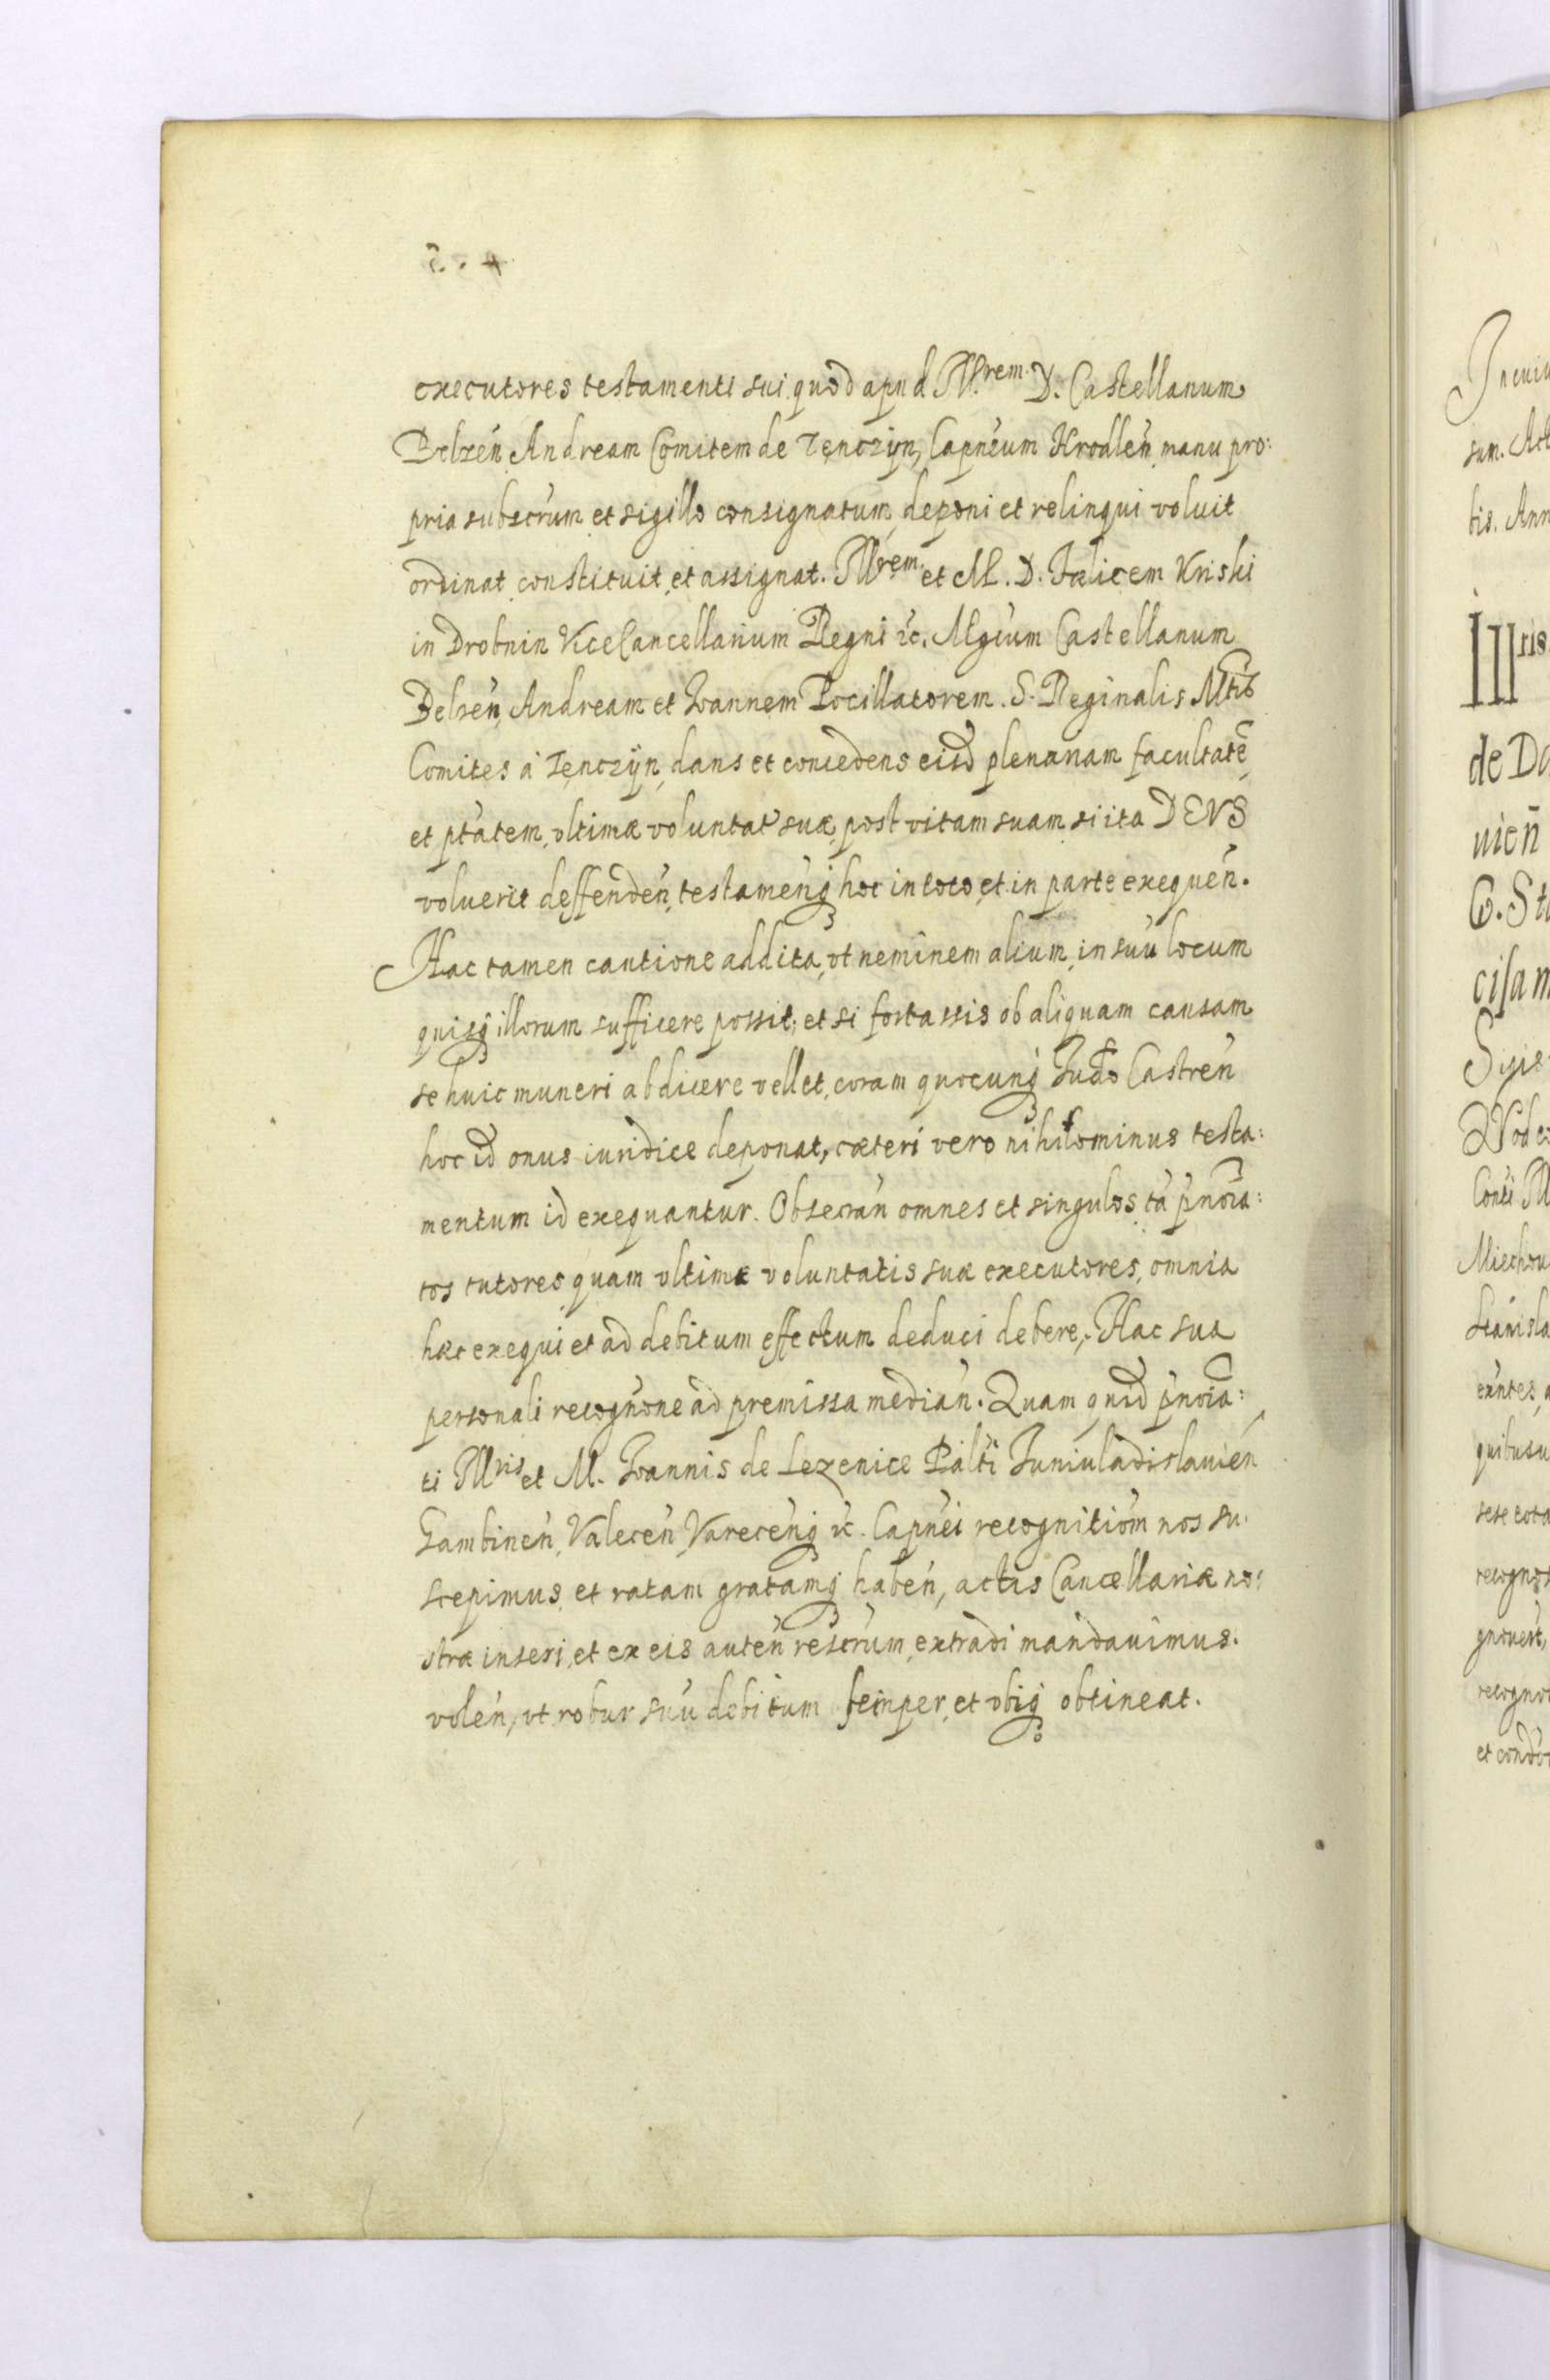 executores testamenti sui quod apud Ill.rem D. Castellanum
Belzeń Andream Comitem de Tenczyn, Capneum Hrodleń manu pro:
pria subscrum et sigillo consignatum, deponi et relinqui voluit
ordinat, constituit, et assignat. Illrem et M. D. Fælicem Kriski
in Drobnin ViceCancellarium Regni &c. Mgcum Castellanum
Belzeń, Andream et Ioannem Pocillatorem. S. Reginalis Mtis
Comites à Tenczyn, dans et concedens eisd plenariam facultatē
et ptatem, vltimæ voluntat suæ post vitam suam si ita DEVS
voluerit deffendeń, testamenq hoc in toto et in parte exequeń.
Hac tamen cautione addita, vt neminem alium, in suū locum
quisq illorum sufficere possit; et si fortassis ob aliquam causam
se huic muneri abdicere vellet, coram quocunq Iudo Castreń
hoc id onus iuridice deponat, cæteri vero nihilominus testa:
mentum id exequantur. Obsecrań omnes et singulos tā pnoīa:
tos tutores quam vltimæ voluntatis suæ executores, omnia
hæc exequi et ad debitum effectum deduci debere, Hac sua
personali recognōne ad premissa mediań. Quam quid pnoīa:
ti Illris et M. Ioannis de Lezenice Palti Iuniuladislauień
Gambineń, Valeceń, Varecenq &c. Capnei recognitiom nos su:
scepimus, et ratam gratamq habeń, actis Cancellariæ no:
stræ inseri, et ex eis auteń rescrum, extradi mandauimus.
voleń, vt robur suū debitum semper, et vbiq obtineat.
Illris
de Da
uień
C. St
cisam
sum. Act
tis. Ann
Miechou
Stanisla
quibusu
et condo